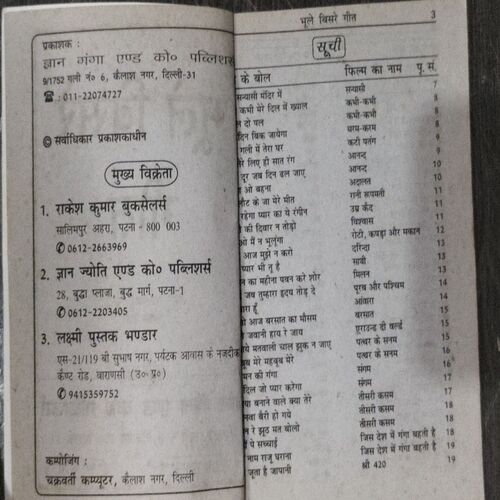 प्रकाशक :
ज्ञान गंगा एण्ड को० पब्लिशर्स
9/1752 गली नं० 6, कैलाश नगर, दिल्ली-31
☎ : 011-22074727
© सर्वाधिकार प्रकाशकाधीन
मुख्य विक्रेता
1. राकेश कुमार बुकसेलर्स
सालिमपुर अहरा, पटना - 800 003
✆ 0612-2663969
2. ज्ञान ज्योति एण्ड को० पब्लिशर्स
28, बुद्धा प्लाजा, बुद्ध मार्ग, पटना-1
✆ 0612-2203405
3. लक्ष्मी पुस्तक भण्डार
एस-21/119 बी सुभाष नगर, पर्यटक आवास के नजदीक
कैण्ट रोड, वाराणसी (उ० प्र०)
✆ 9415359752
कम्पोजिंग :
चक्रवर्ती कम्प्यूटर, कैलाश नगर, दिल्ली
भूले बिसरे गीत 3
सूची
के बोल फिल्म का नाम पृ. सं.
सन्यासी मंदिर में सन्यासी 7
कभी मेरे दिल में ख्याल कभी-कभी 8
ल दो पल कभी-कभी 8
दिन बिक जायेगा धरम-करम 8
गली में तेरा घर कटी पतंग 9
रे लिए ही सात रंग आनन्द 9
दूर जब दिन ढल जाए आनन्द 10
ओ बहना अदालत 10
लौट के जा मेरे मीत रानी रूपमती 11
रहेगा प्यार का ये रंगीन उम्र कैद 11
की दिवार न तोड़ो विश्वास 11
ओ मैं न भूलूंगा रोटी, कपड़ा और मकान 12
आज मुझे न करो दरिन्दा 13
प्यार भी तू है साथी 13
न का महीना पवन करे शोर मिलन 13
जब तुम्हारा हृदय तोड़ दे पूरब और पश्चिम 14
रा हूँ आवारा 14
आज बरसात का मौसम बरसात 15
है जवानी हाय रे जाय एराउन्ड दी वर्ल्ड 15
ये मतवाली चाल झुक न जाए पत्थर के सनम 15
बूब मेरे महबूब मेरे पत्थर के सनम 16
मन की गंगा संगम 16
दिल जो प्यार करेगा संगम 17
या बनाने वाले क्या तेरे तीसरी कसम 17
नवा बैरी हो गये तीसरी कसम 18
न रे झूठ मत बोलो तीसरी कसम 18
ये सच्चाई जिस देश में गंगा बहती है 18
नाम राजू घराना जिस देश में गंगा बहती है 19
जूता है जापानी श्री 420 19